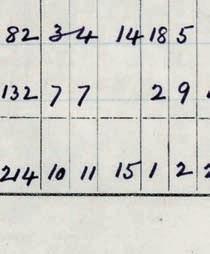 82 3 4 14 18 5
132 7 7 2 9
214 10 11 15 1 2